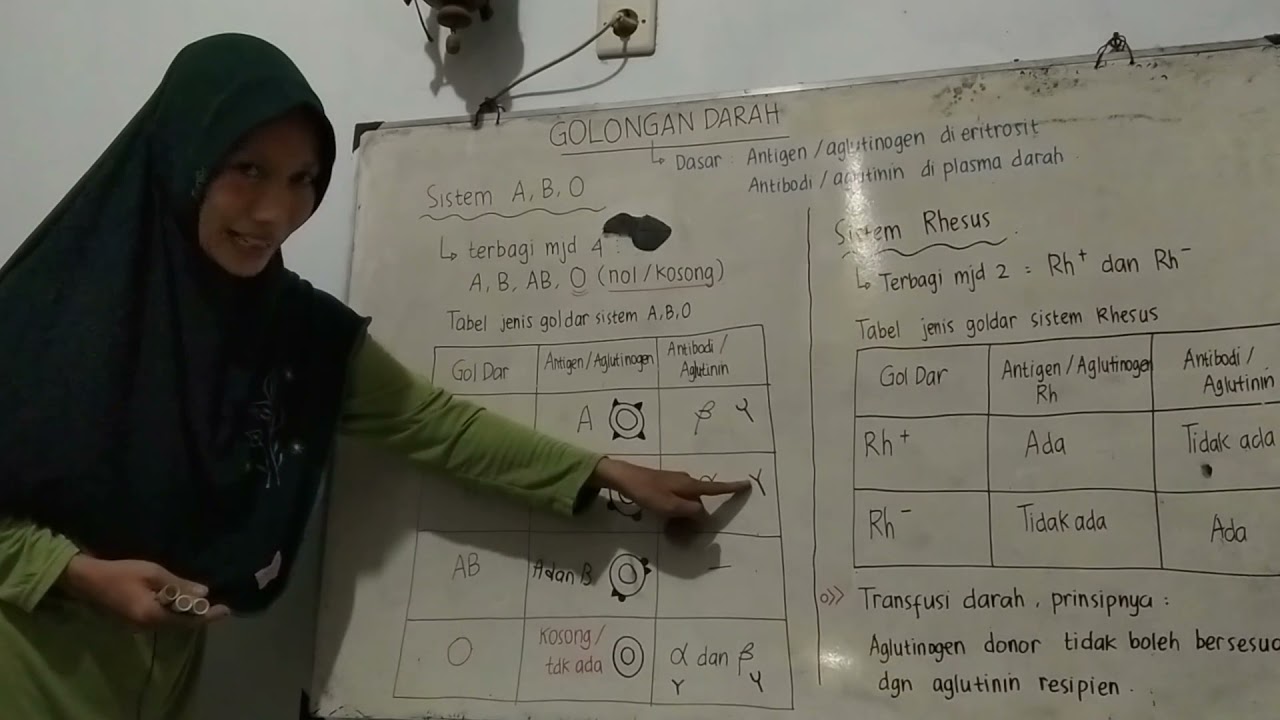 GOLONGAN DARAH
↳ Dasar : Antigen / aglutinogen di eritrosit
Antibodi / aglutinin di plasma darah
Sistem A, B, O
↳ terbagi mjd 4 :
A, B, AB, O (nol / kosong)
Tabel jenis goldar sistem A,B,O
Gol Dar Antigen / Aglutinogen Antibodi / Aglutinin
A β
α
AB A dan B –
O Kosong / tdk ada α dan β
Sistem Rhesus
↳ Terbagi mjd 2 = Rh⁺ dan Rh⁻
Tabel jenis goldar sistem Rhesus
Gol Dar Antigen / Aglutinogen Rh Antibodi / Aglutinin
Rh⁺ Ada Tidak ada
Rh⁻ Tidak ada Ada
Transfusi darah, prinsipnya :
Aglutinogen donor tidak boleh bersesua
dgn aglutinin resipien.